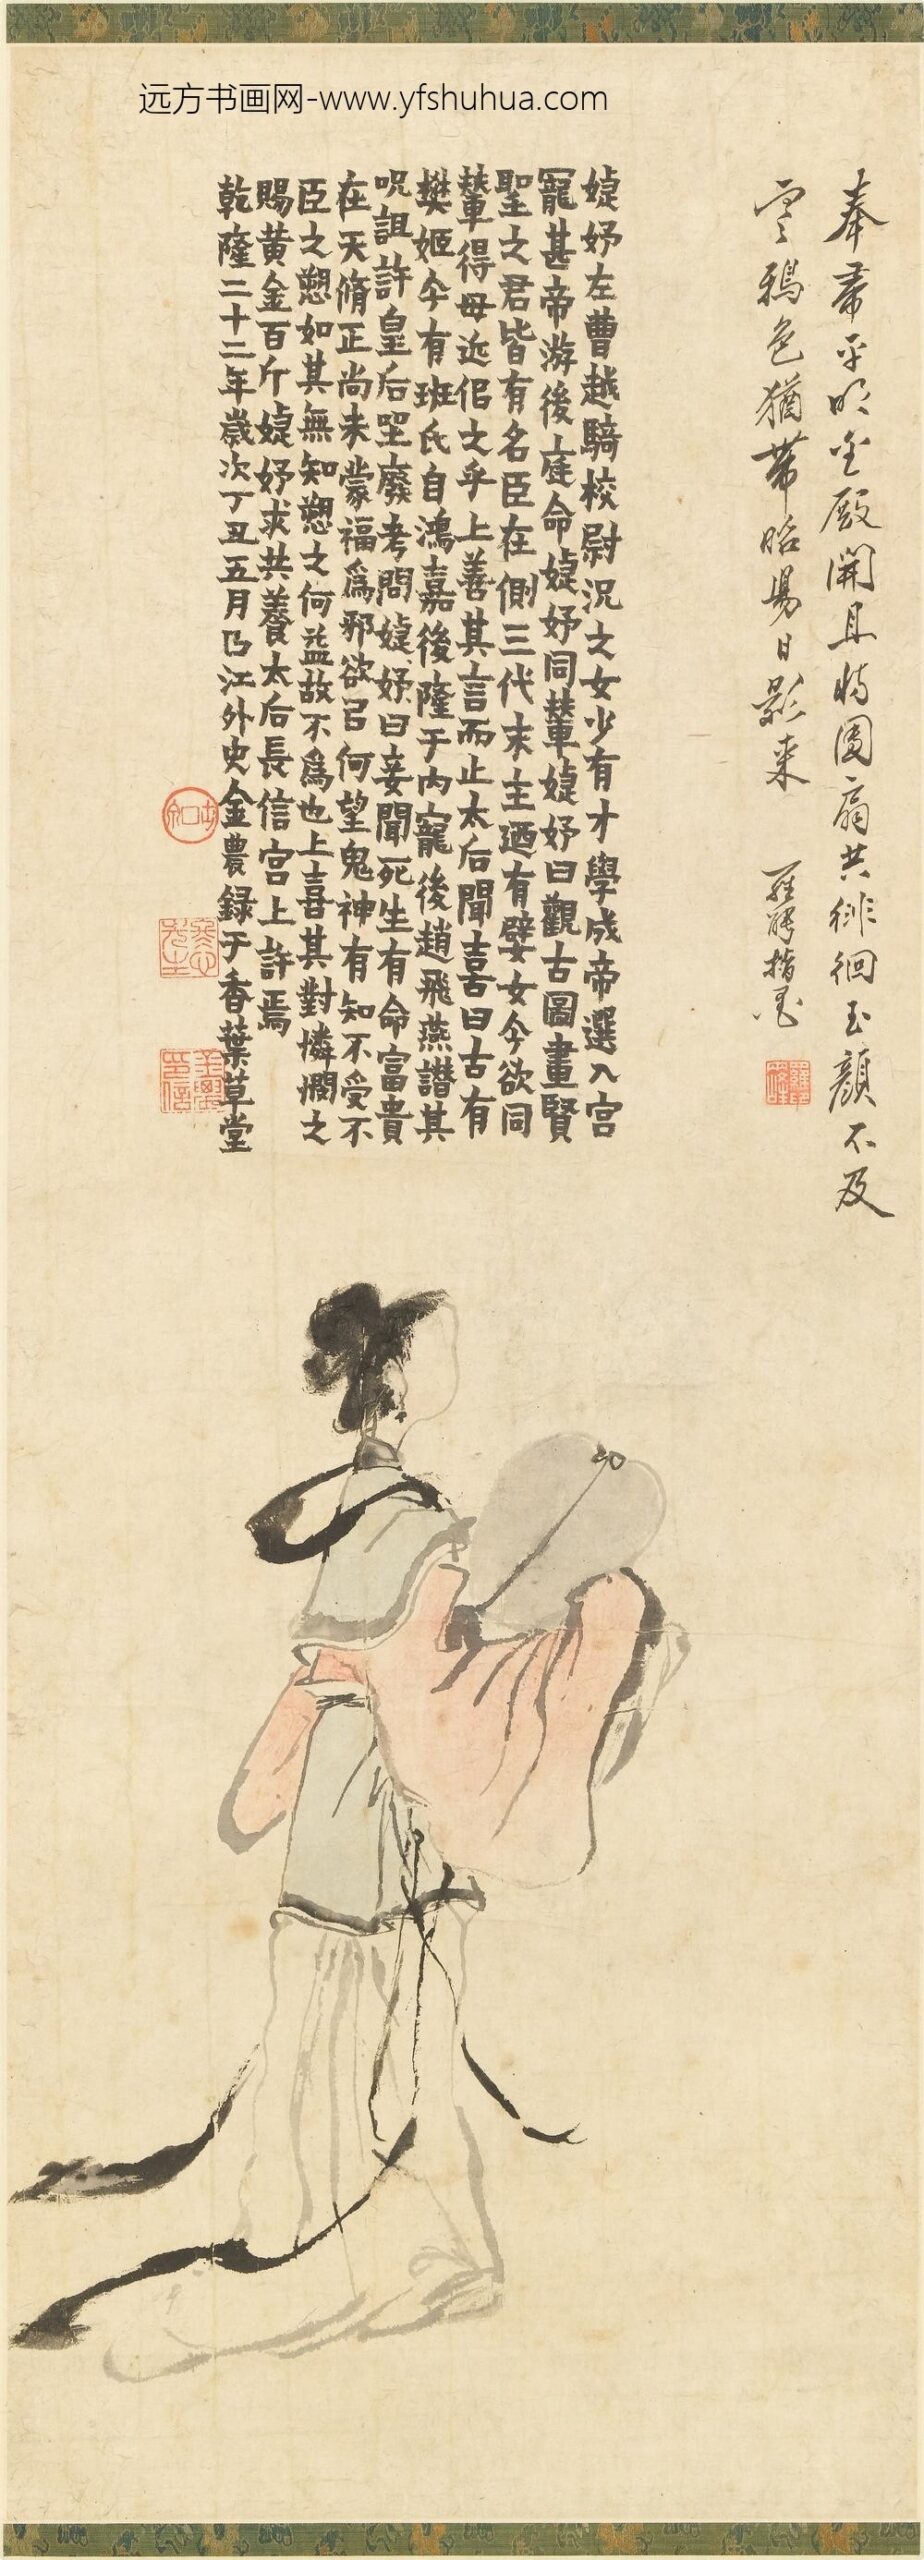 远方书画网-www.yfshuhua.com
奉帚平明金殿開且將團扇共徘徊玉顏不及
寒鴉色猶帶昭陽日影來 羅聘指墨
婕妤左曹越騎校尉況之女少有才學成帝選入宮
寵甚帝游後庭命婕妤同輦婕妤曰觀古圖畫賢
聖之君皆有名臣在側三代末主迺有嬖女今欲同
輦得毋近佀之乎上善其言而止太后聞喜曰古有
樊姬今有班氏自鴻嘉後隆于內寵後趙飛燕譖其
呪詛許皇后坐廢考問婕妤曰妾聞死生有命富貴
在天脩正尚未蒙福爲邪欲㠯何望鬼神有知不受不
臣之愬如其無知愬之何益故不爲也上喜其對憐憫之
賜黃金百斤婕妤求共養太后長信宮上許焉
乾隆二十二年歲次丁丑五月曲江外史金農録于香葉草堂
冬心先生
金農印信